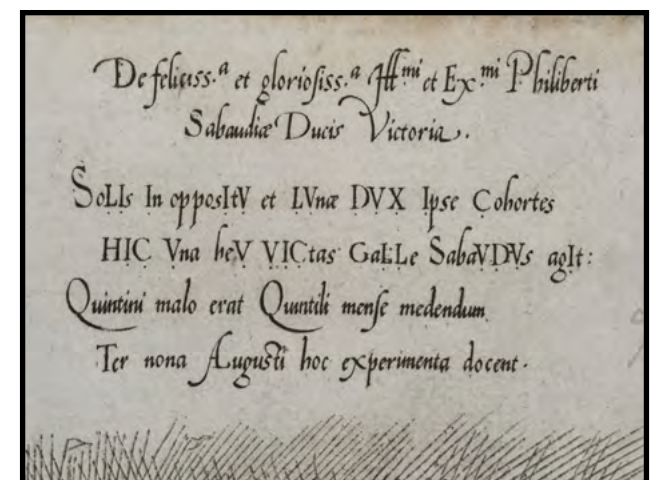 De feliciss.ª et gloriosiss.ª Ill.mi et Ex.mi Philiberti
Sabaudiæ Ducis Victoria.
SoLIs In opposItV et LVnæ DVX Ipse Cohortes
HIC Vna heV VICtas GaLLe SabaVDVs agIt:
Quintini malo erat Quintili mense medendum
Ter nona Augusti hoc experimenta docent.